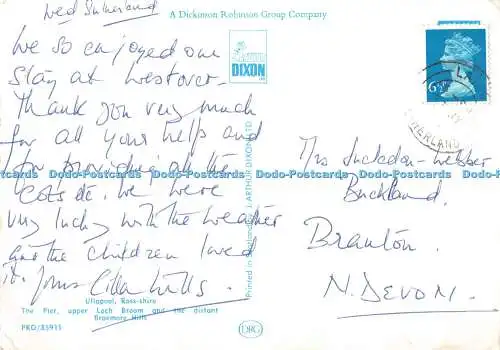 A Dickinson Robinson Group Company
We so enjoyed our
stay at Westover.
Thank you very much
for all your help and
for providing all the
cots etc. We were
very lucky with the weather
and the children loved
it. Yours
Ullapool, Ross-shire
The Pier, upper Loch Broom and the distant
Braemore Hills
PKD/85915
DIXON
Printed in Scotland by J. ARTHUR DIXON LTD.
DRG
6½
Mrs Incledon-Webber
Buckland.
Braunton.
N. DEVON.
Dodo-Postcards Dodo-Postcards Dodo-Postcards Dodo-Postcards Dodo-Postcards Dodo-Postcards
Dodo-Postcards Dodo-Postcards Dodo-Postcards Dodo-Postcards Dodo-Postcards Dodo-Postcards